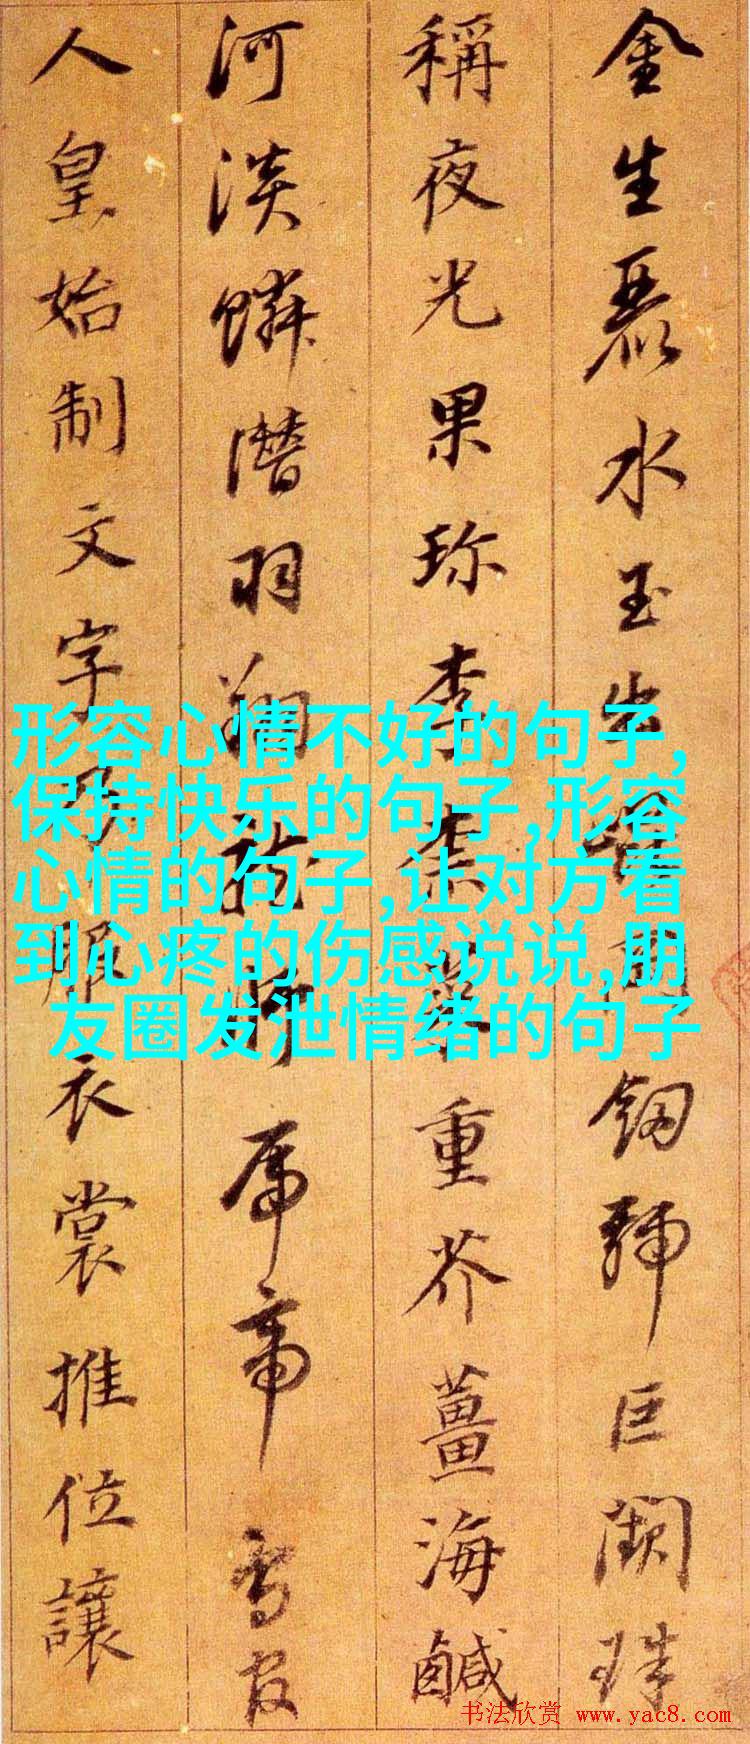 金生麗水玉出崑岡劍號巨闕珠
稱夜光果珍李柰菜重芥薑海鹹
河淡鱗潛羽翔龍師帝鳥官
人皇始制文字乃服衣裳推位讓
形容心情不好的句子,
保持快乐的句子,形容
心情的句子,让对方看
到心疼的伤感说说,朋
友圈发泄情绪的句子
书法欣赏 www.yac8.com